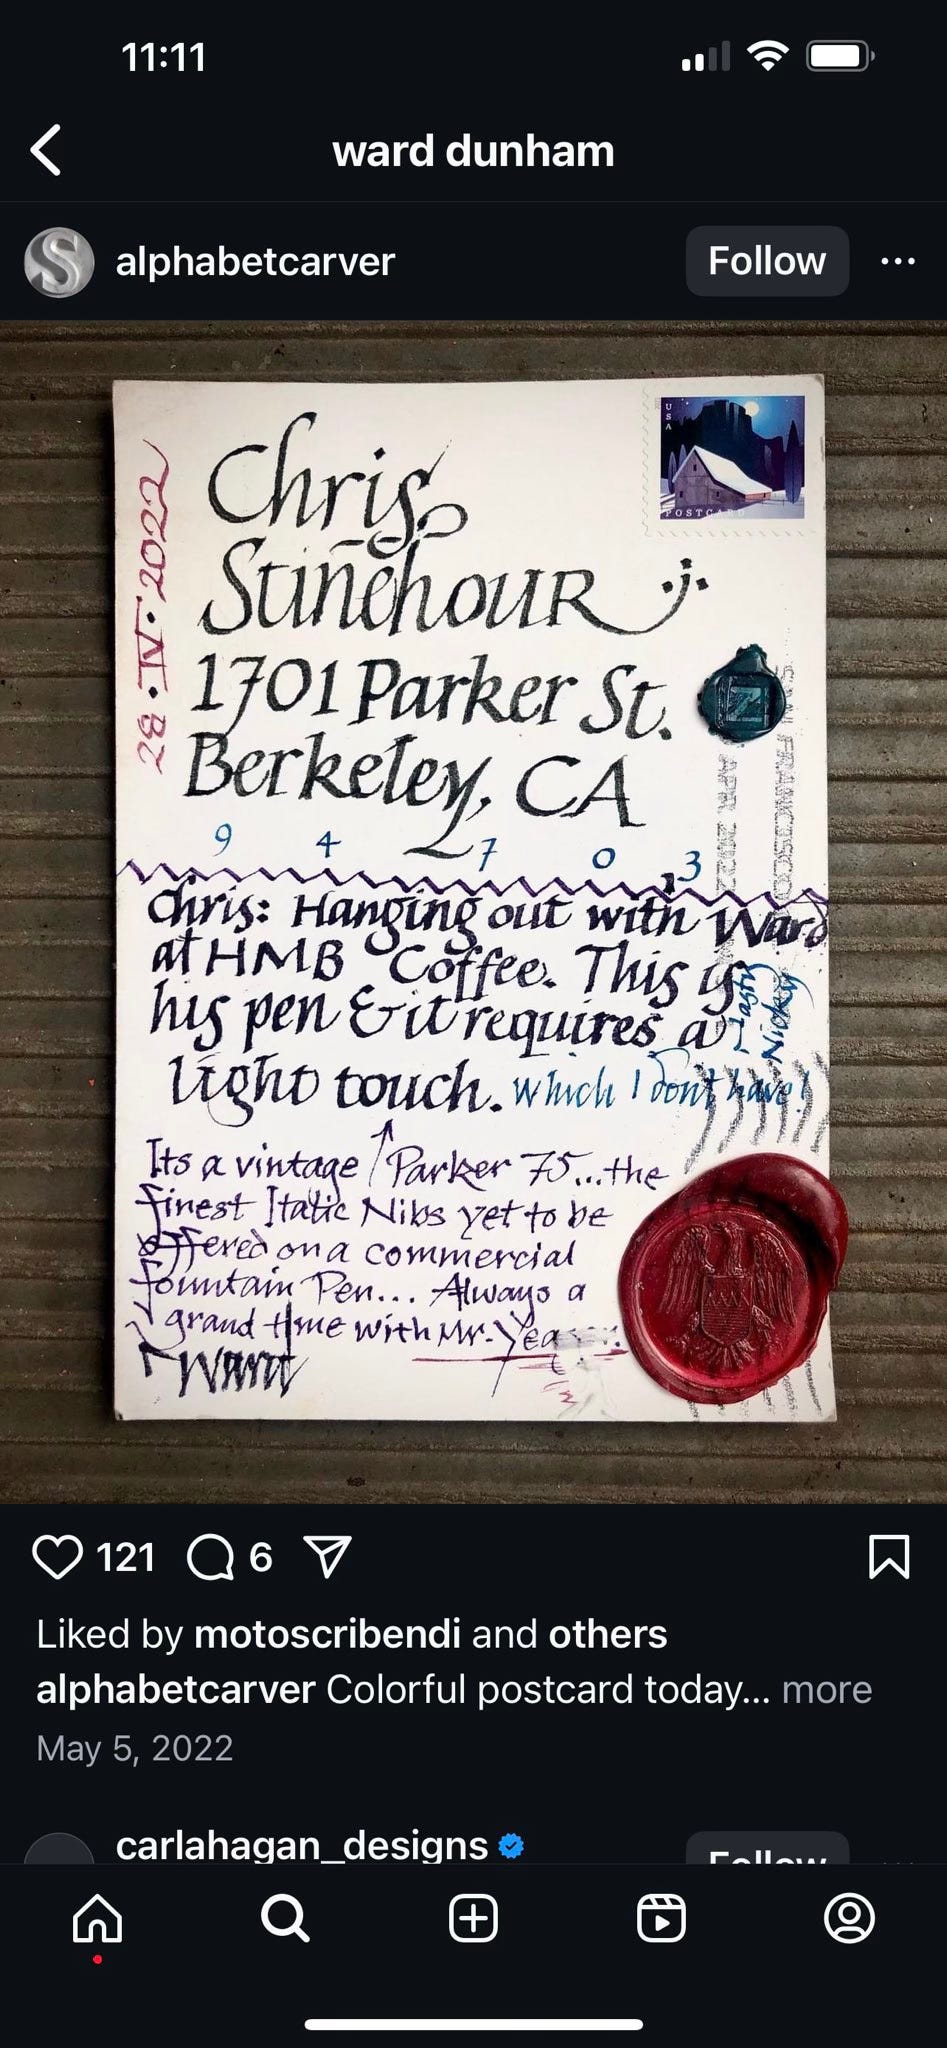 11:11
ward dunham
alphabetcarver
Follow
USA
POSTCARD
28·IV·2022
Chris
Stinehour
1701 Parker St.
Berkeley, CA
9 4 7 0 3
SAN FRANCISCO
APR 2022
Chris: Hanging out with Ward
at HMB Coffee. This is
his pen & it requires a
light touch. which I don't have!
Nasty
Nicky
Its a vintage Parker 75...the
finest Italic Nibs yet to be
offered on a commercial
fountain Pen... Always a
grand time with Mr.
Ward
121
6
Liked by motoscribendi and others
alphabetcarver Colorful postcard today... more
May 5, 2022
carlahagan_designs
Follow